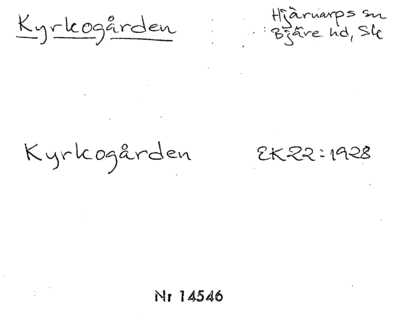 Kyrkogården
Hjärnarps sn
Bjäre hd, Sk
Kyrkogården
EK22:1928
Nr 14546